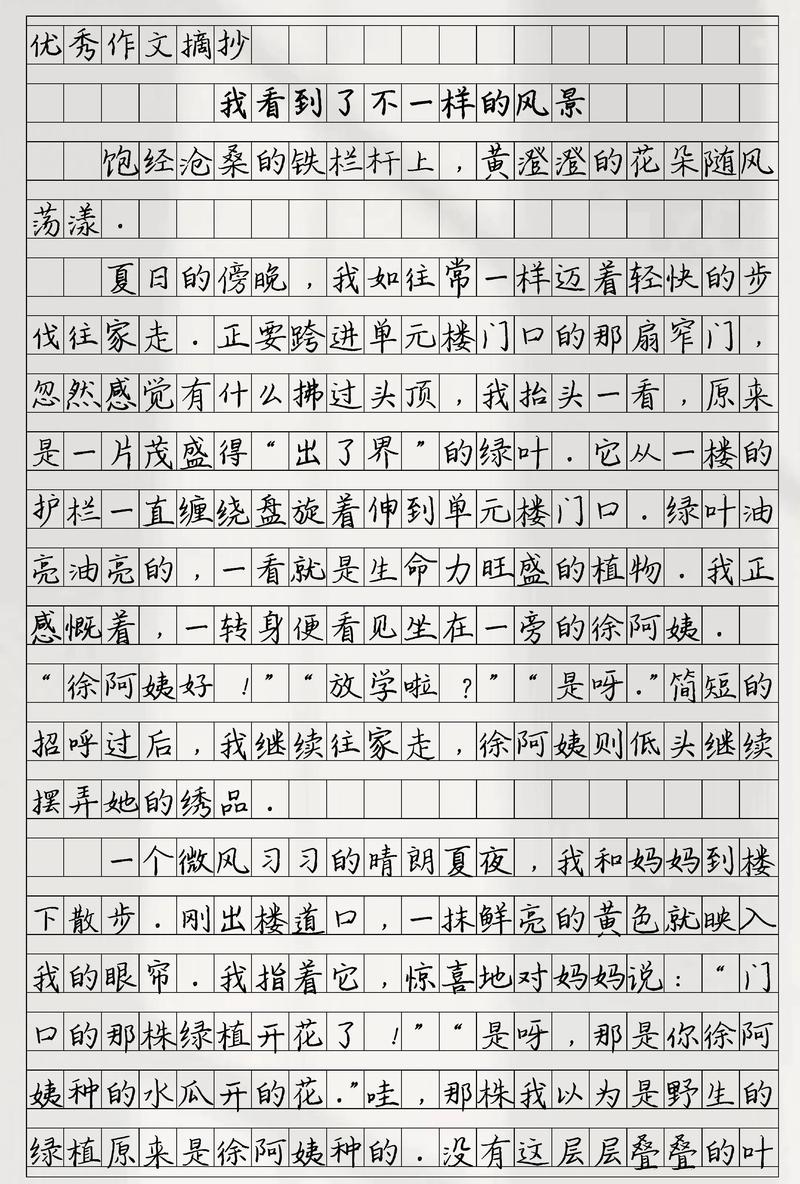 优秀作文摘抄
我看到了不一样的风景
饱经沧桑的铁栏杆上，黄澄澄的花朵随风
荡漾.
夏日的傍晚，我如往常一样迈着轻快的步
伐往家走.正要跨进单元楼门口的那扇窄门，
忽然感觉有什么拂过头顶，我抬头一看，原来
是一片茂盛得“出了界”的绿叶.它从一楼的
护栏一直缠绕盘旋着伸到单元楼门口.绿叶油
亮油亮的，一看就是生命力旺盛的植物.我正
感慨着，一转身便看见坐在一旁的徐阿姨.
“徐阿姨好！”“放学啦？”“是呀.”简短的
招呼过后，我继续往家走，徐阿姨则低头继续
摆弄她的绣品.
一个微风习习的晴朗夏夜，我和妈妈到楼
下散步.刚出楼道口，一抹鲜亮的黄色就映入
我的眼帘.我指着它，惊喜地对妈妈说：“门
口的那株绿植开花了！”“是呀，那是你徐阿
姨种的水瓜开的花.”哇，那株我以为是野生的
绿植原来是徐阿姨种的.没有这层层叠叠的叶